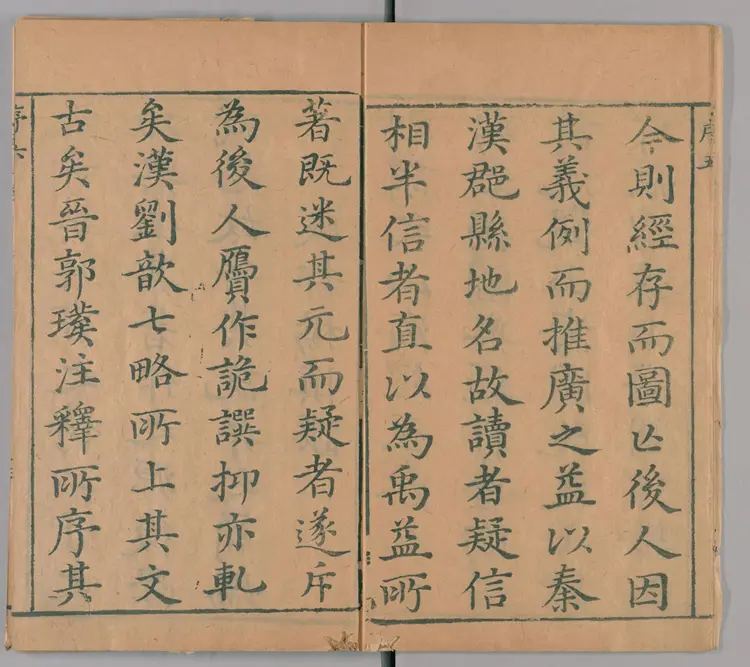 序五
今則經存而圖亾後人因
其義例而推廣之益以秦
漢郡縣地名故讀者疑信
相半信者直以為禹益所
著既迷其元而疑者遂斥
為後人贋作詭譔抑亦軋
矣漢劉歆七略所上其文
古矣晉郭璞注釋所序其
序六